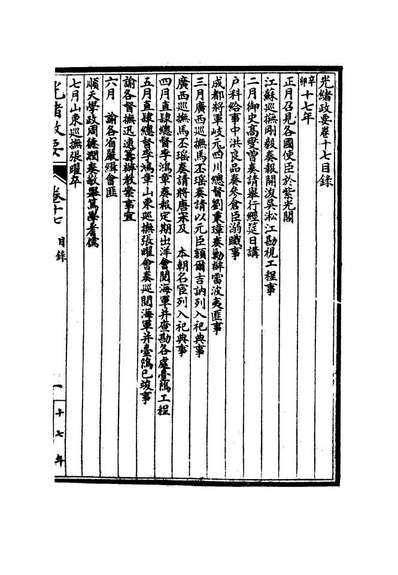 光緒政要卷十七目錄
辛卯十七年
正月召見各國使臣於紫光閣
江蘇巡撫剛毅奏報開濬吳淞江勘視工程事
二月御史高燮曾奏請舉行經筵日講
戶科給事中洪良品奏參倉臣溺職事
成都將軍岐元四川總督劉秉璋奏勦辦雷波夷匪事
三月廣西巡撫馬丕瑤奏請以元臣額爾吉訥列入祀典事
廣西巡撫馬丕瑤奏請將唐宋及 本朝名宦列入祀典事
四月直隸總督李鴻章奏報定期出洋會閱海軍并查勘各處臺隖工程
五月直隸總督李鴻章山東巡撫張曜會奏巡閱海軍并臺隖已竣事
諭各督撫迅速籌辦教案事宜
六月 諭各省嚴緝會匪
順天學政周德潤奏教畢篤學耆儒
七月山東巡撫張曜卒
光緒政要 卷十七 目錄
一 十七年